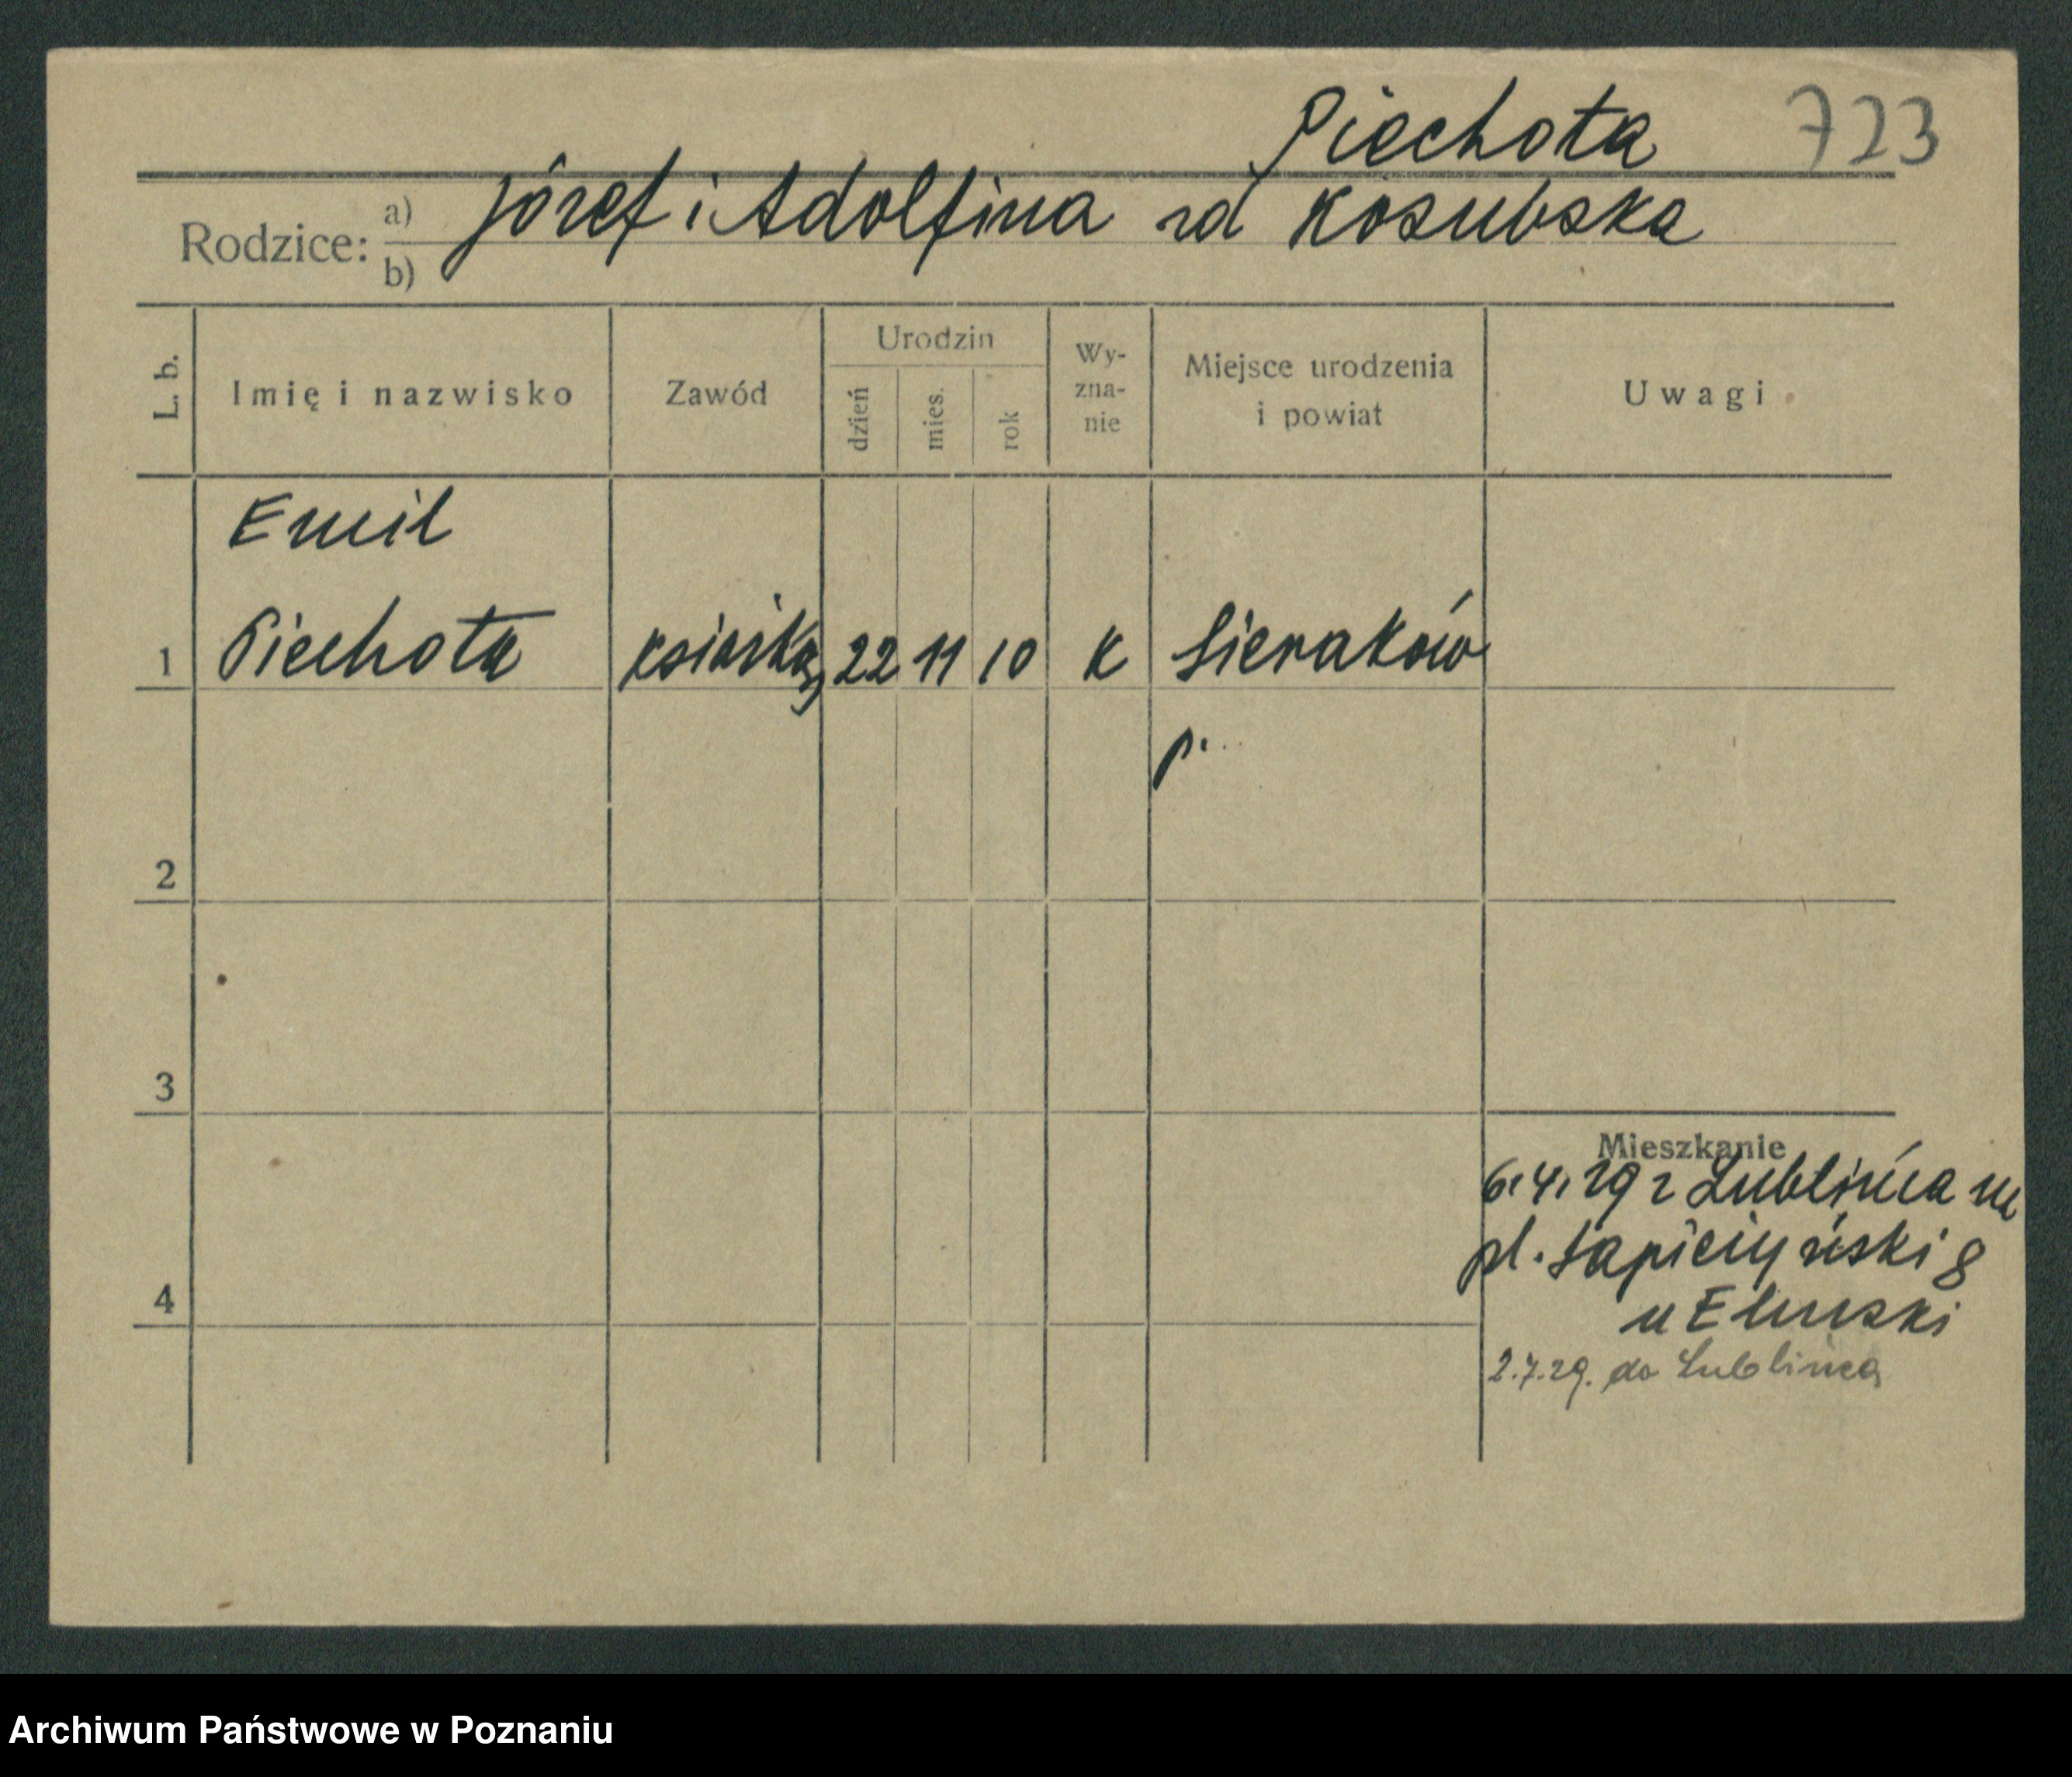 Piechota 723
Rodzice: a) Józef i Adolfina zd Kosubska
b)
L. b.
Imię i nazwisko
Zawód
Urodzin
dzień
mies.
rok
Wy-
zna-
nie
Miejsce urodzenia
i powiat
Uwagi
Emil
1 Piechota 22 11 10 K Sieraków
p.
2
3
4
Mieszkanie
6.4.29 z Lublińca
pl. Sapieżyński 8
u
2.7.29. do Lublińca
Archiwum Państwowe w Poznaniu